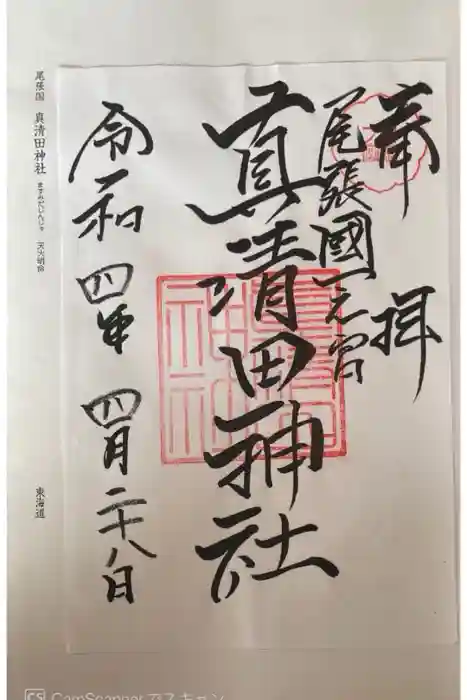 奉拝
尾張國一之宮
真清田神社
令和四年四月二十八日
尾張国 真清田神社 ますみだじんじゃ 天火明命
東海道
CS CamScannerでスキャン